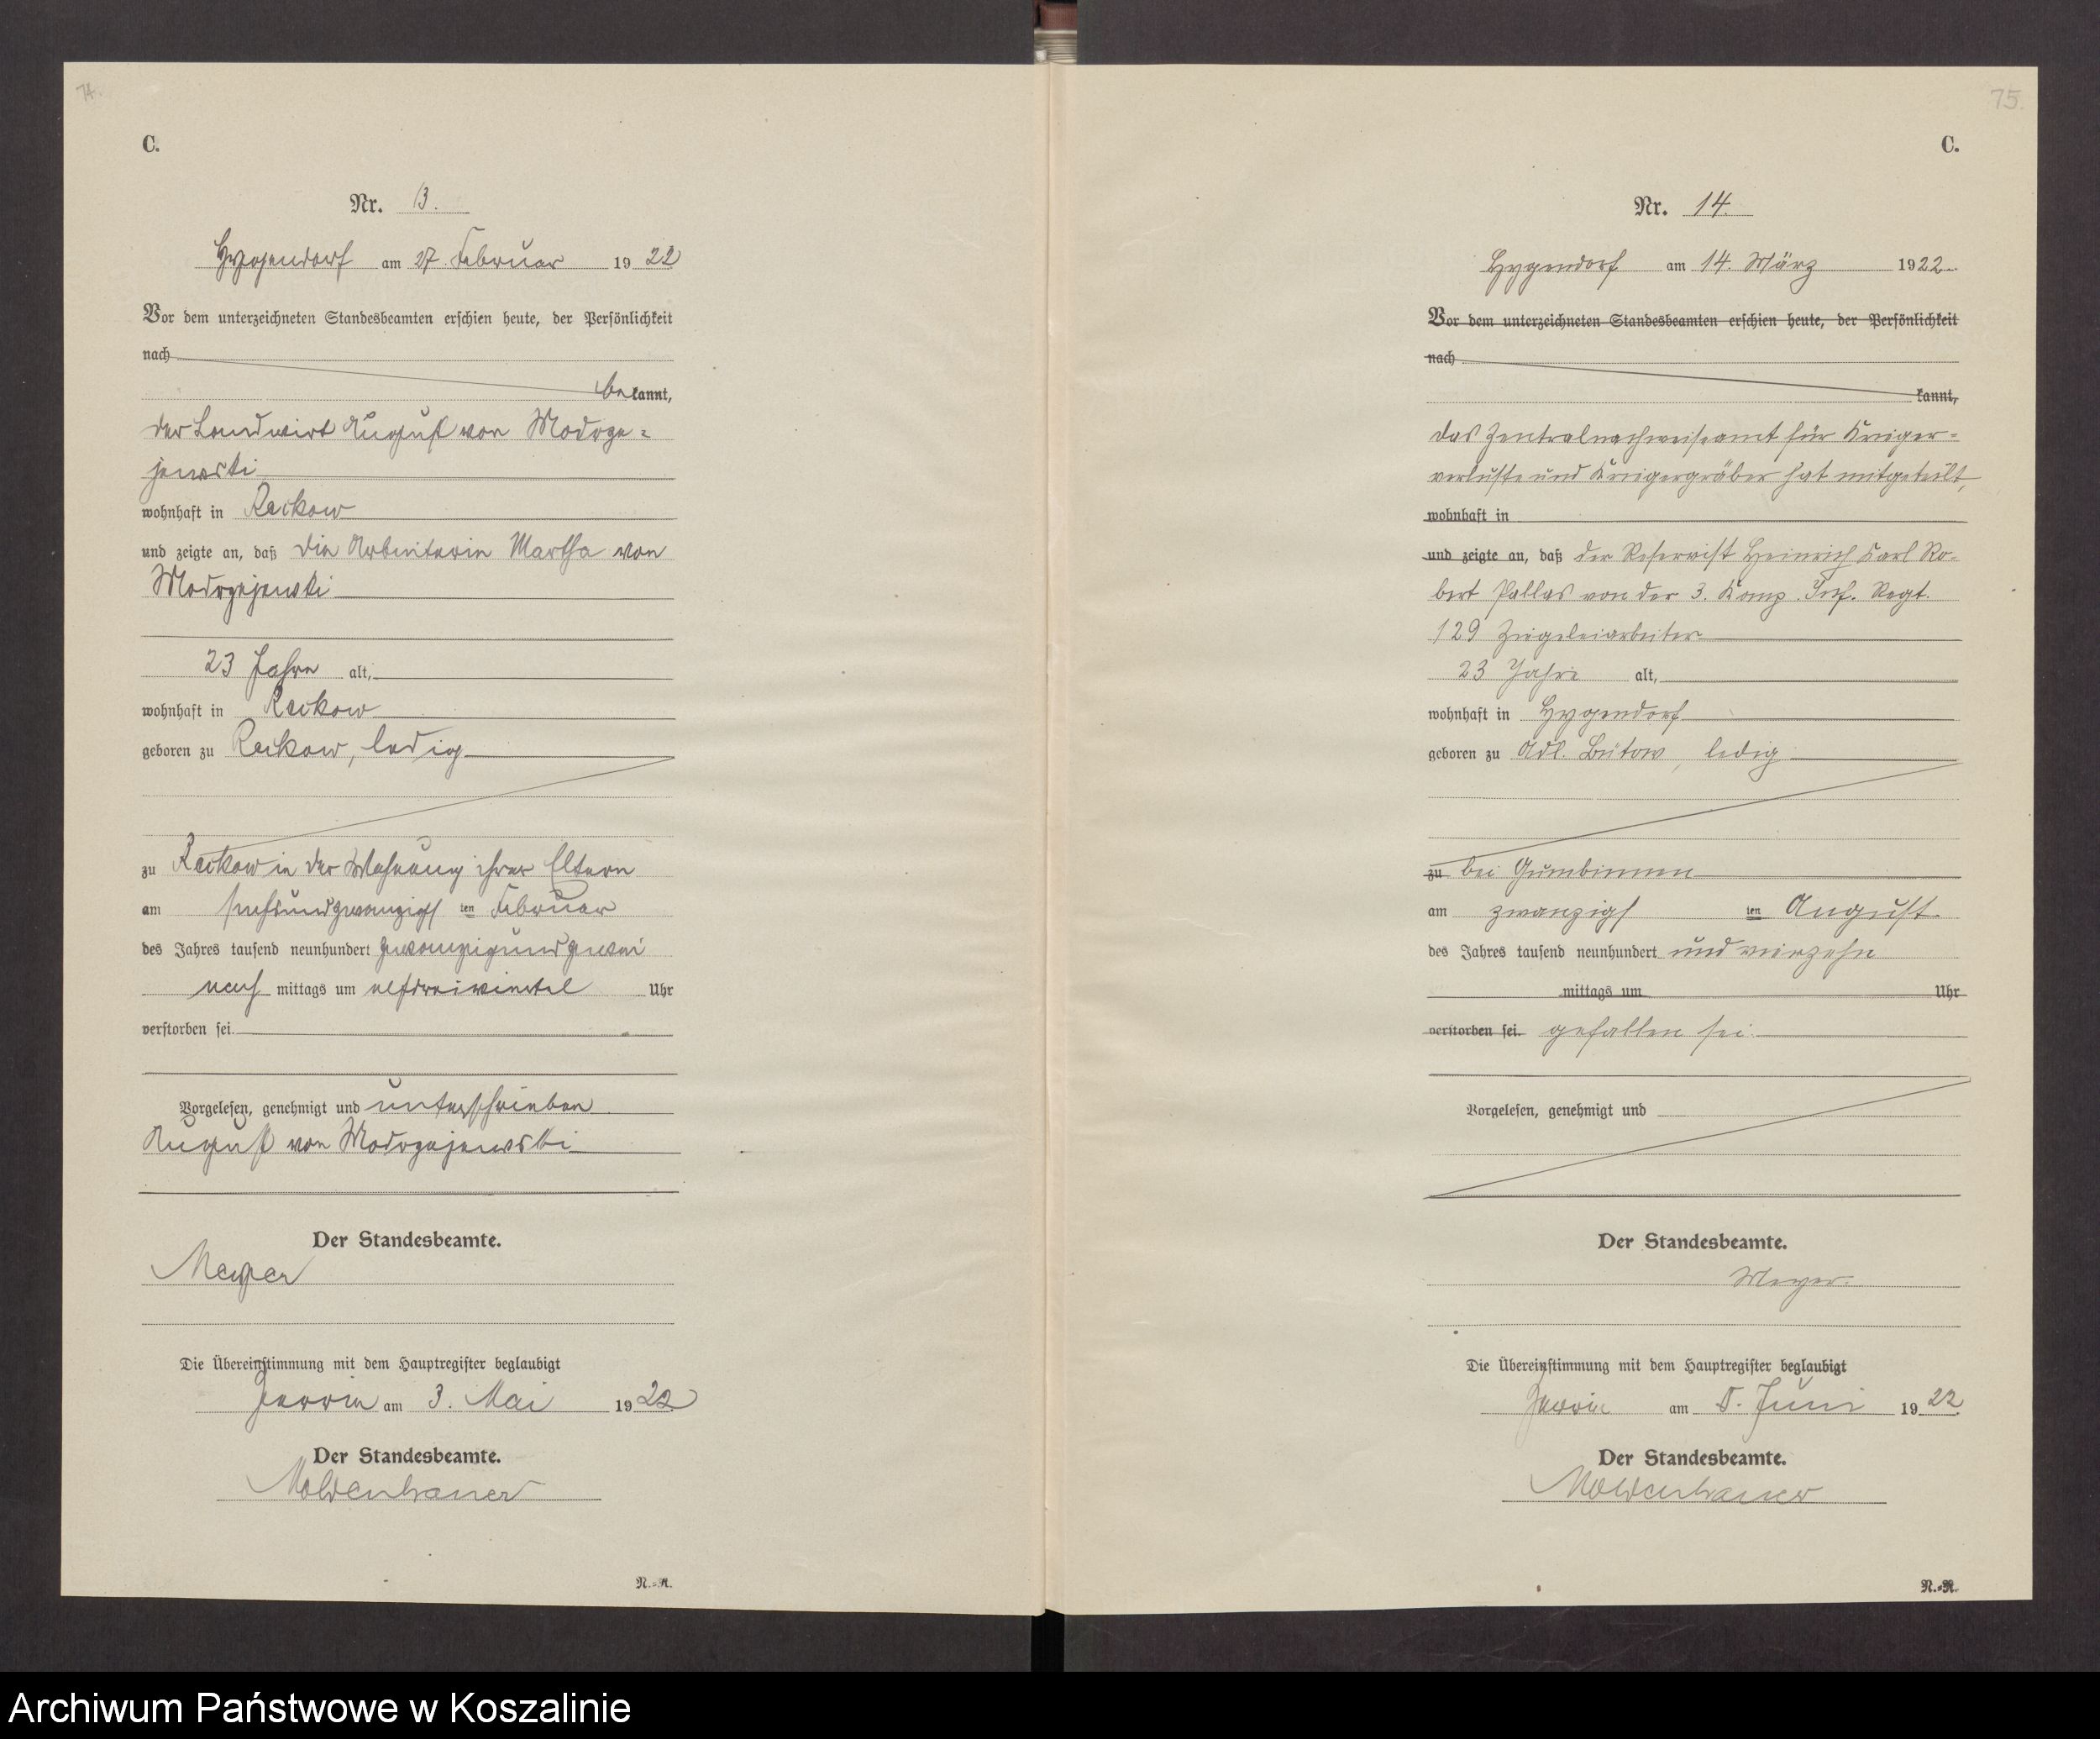 74.
C.
Nr. 13.
Hygendorf am 27. Februar 1922
Vor dem unterzeichneten Standesbeamten erschien heute, der Persönlichkeit
nach
bekannt,
der Landwirt August von Modrze=
jewski
wohnhaft in Reckow
und zeigte an, daß die Arbeiterin Martha von
Modrzejewski
23 Jahre alt,
wohnhaft in Reckow
geboren zu Reckow, ledig
zu Reckow in der Wohnung ihrer Eltern
am sechsundzwanzigsten Februar
des Jahres tausend neunhundert zwanzigundzwei
nachmittags um elfdreiviertel Uhr
verstorben sei.
Vorgelesen, genehmigt und unterschrieben
August von Modrzejewski
Der Standesbeamte.
Meyer
Die Übereinstimmung mit dem Hauptregister beglaubigt
am 3. Mai 1922
Der Standesbeamte.
Moldenhauer
N.=R.
75.
C.
Nr. 14.
Hygendorf am 14. März 1922.
Vor dem unterzeichneten Standesbeamten erschien heute, der Persönlichkeit
nach
kannt,
das Zentralnachweiseamt für Krieger-
verluste und Kriegergräber hat mitgeteilt,
wohnhaft in
und zeigte an, daß der Reservist Heinrich Karl Ro-
bert Pallas von der 3. Komp. Inf. Regt.
129 Ziegeleiarbeiter
23 Jahre alt,
wohnhaft in Hygendorf
geboren zu Adl. Bütow, ledig
zu bei Gumbinnen
am zwanzigsten August
des Jahres tausend neunhundert und vierzehn
mittags um Uhr
verstorben sei. gefallen sei.
Vorgelesen, genehmigt und
Der Standesbeamte.
Meyer.
Die Übereinstimmung mit dem Hauptregister beglaubigt
am 5. Juni 1922
Der Standesbeamte.
Moldenhauer
N.=R.
Archiwum Państwowe w Koszalinie